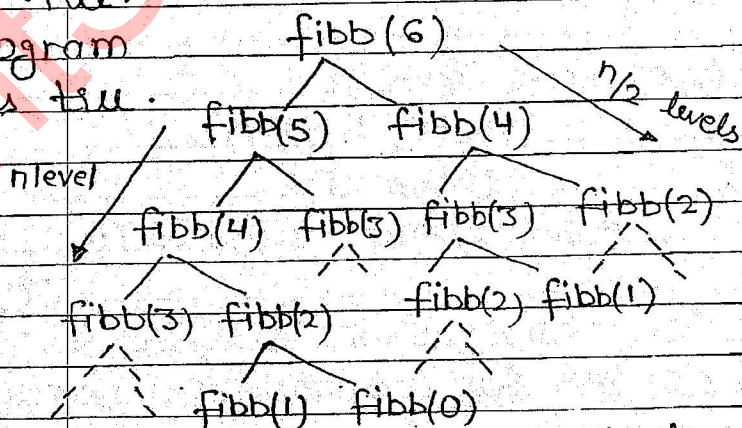 ogram
fibb(6)
s till.
n/2 levels
fibb(5) fibb(4)
n level
fibb(4) fibb(3) fibb(3) fibb(2)
fibb(3) fibb(2) fibb(2) fibb(1)
fibb(1) fibb(0)